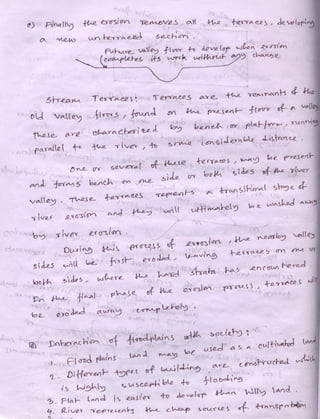 e) Finally the erosion removes all the terraces, developing
a new unterraced section.
Future valley floor to develop when erosion
(completes its work without any change.
Stream Terraces: Terraces are the remnants of the
old valley floors, found on the present floor of a valley
These are characterized by bench or platform, running
parallel to the river, to some considerable distance.
One or several of these terraces, may be present
and forms bench on one side or both sides of the river
valley. These terraces represents a transitional stage of
river erosion and they will ultimately be washed away
by river erosion.
During this process of erosion, the nearby valley
sides will be first eroded, leaving terraces on one or
both sides, where the hard strata has encountered.
In the final phase of the erosion process, terraces will
be eroded away completely.
Interaction of floodplains with society:
1. Flood plains land may be used as a cultivated land
2. Different types of building are constructed which
is highly susceptible to flooding.
3. Flat land is easier to develop than hilly land.
4. River represents the cheap sources of transportation